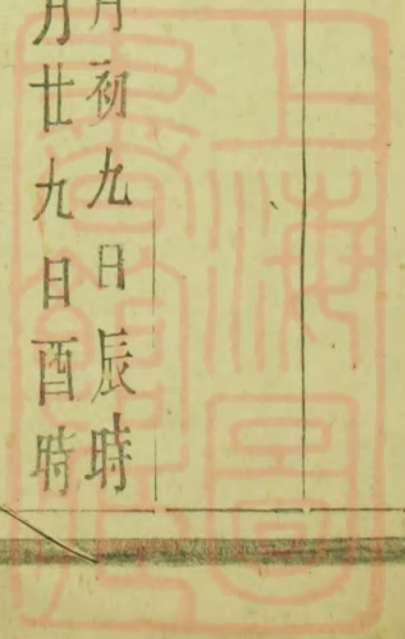 月初九日辰時
月廿九日酉時
上海圖
書館藏